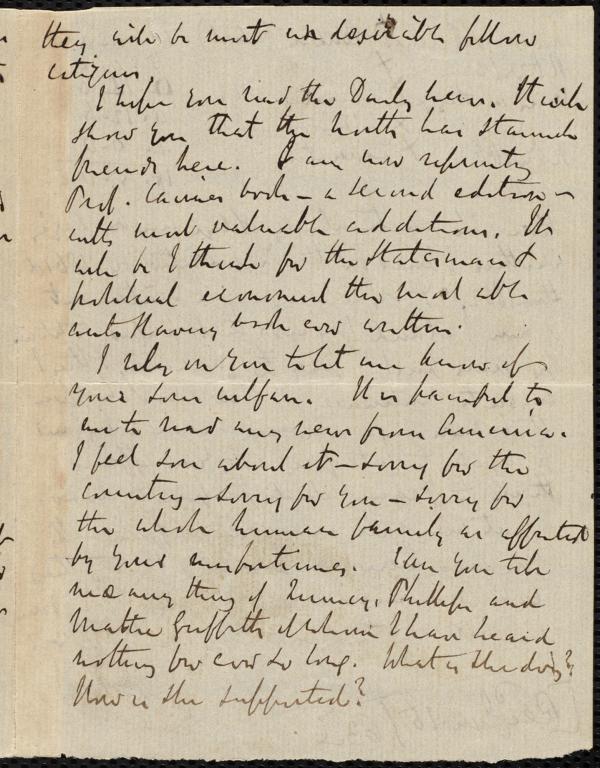 they will be most undesirable fellow
citizens.
I hope you read the Daily News. It will
show you that the North has staunch
friends here. I am now reprinting
Prof. Cairnes book – a second edition –
with most valuable additions. It
will be I think for the Statesman &
political economist the most able
anti Slavery book ever written.
I rely on you to let me know of
your son's welfare. It is painful to
me to read any news from America.
I feel sore about it – sorry for the
country – sorry for you – sorry for
the whole human family as affected
by your misfortunes. Can you tell
me any thing of Quincy, Phillips and
Mattie Griffith of whom I have heard
nothing for ever so long. What is she doing?
How is she supported?